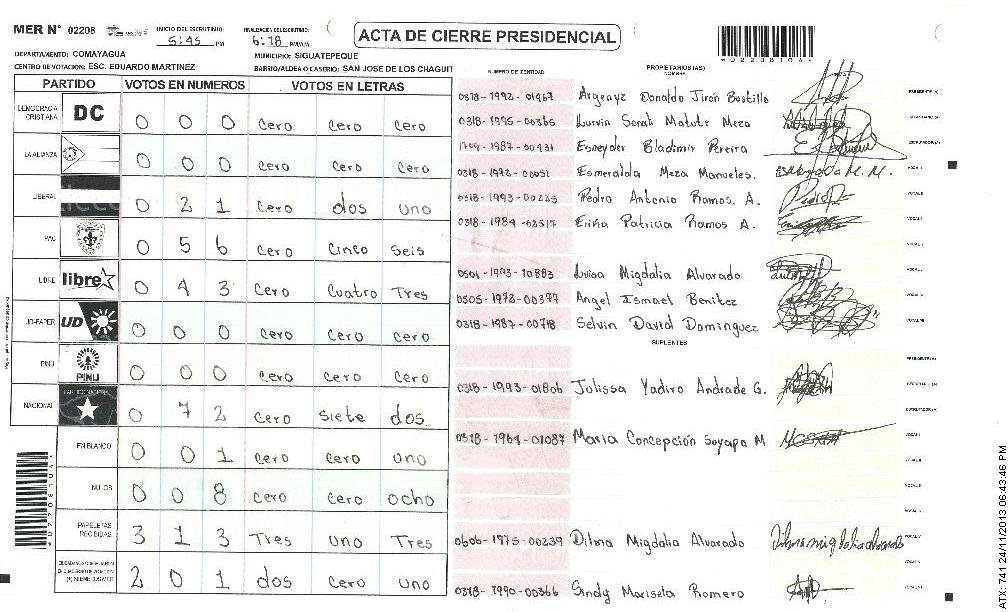 MER N° 02208 INICIO DEL ESCRUTINIO: 5:45 PM FINALIZACION DEL ESCRUTINIO: 6:18 PM/AM
ACTA DE CIERRE PRESIDENCIAL
*02208104*
DEPARTAMENTO: COMAYAGUA MUNICIPIO: SIGUATEPEQUE
CENTRO DE VOTACION: ESC. EDUARDO MARTINEZ BARRIO/ALDEA O CASERIO: SAN JOSE DE LOS CHAGUIT
PARTIDO VOTOS EN NUMEROS VOTOS EN LETRAS
DEMOCRACIA CRISTIANA DC 0 0 0 cero cero cero
LA ALIANZA 0 0 0 cero cero cero
LIBERAL 0 2 1 cero dos uno
PAC 0 5 6 cero cinco seis
LIBRE libre 0 4 3 cero cuatro Tres
UD-FAPER UD 0 0 0 cero cero cero
PINU PINU 0 0 0 cero cero cero
NACIONAL 0 7 2 cero siete dos
EN BLANCO 0 0 1 cero cero uno
NULOS 0 0 8 cero cero ocho
PAPELETAS RECIBIDAS 3 1 3 Tres uno Tres
2 0 1 dos cero uno
NUMERO DE IDENTIDAD PROPIETARIOS (AS)
NOMBRE
Argenyz Donaldo Jirón Bostillo
0318-1995-00365 Lurvin Sarah Matute Meza
Esneyder Bladimir Pereira
0318-1992-00051 Esmeralda Meza Manueles. Esmeralda M. M.
0318-1993-00235 Pedro Antonio Ramos. A.
0318-1984-03517 Eriña Patricia Ramos A.
Luisa Migdalia Alvarado
Angel Ismael Benitez
0318-1987-00718 Selvin David Dominguez
SUPLENTES
0318-1993-01806 Julissa Yadira Andrade G.
0318-1964-01087 Maria Concepción Suyapa M
0606-1975-00239 Dilma Migdalia Alvarado
0318-1990-00366 Sindy Marisela Romero
*02208104*
ATX: 741 24/11/2013 06:43:46 PM